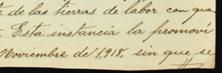 de las tierras de labor con que
Esta instancia la promoví
Noviembre de 1,918, sin que se